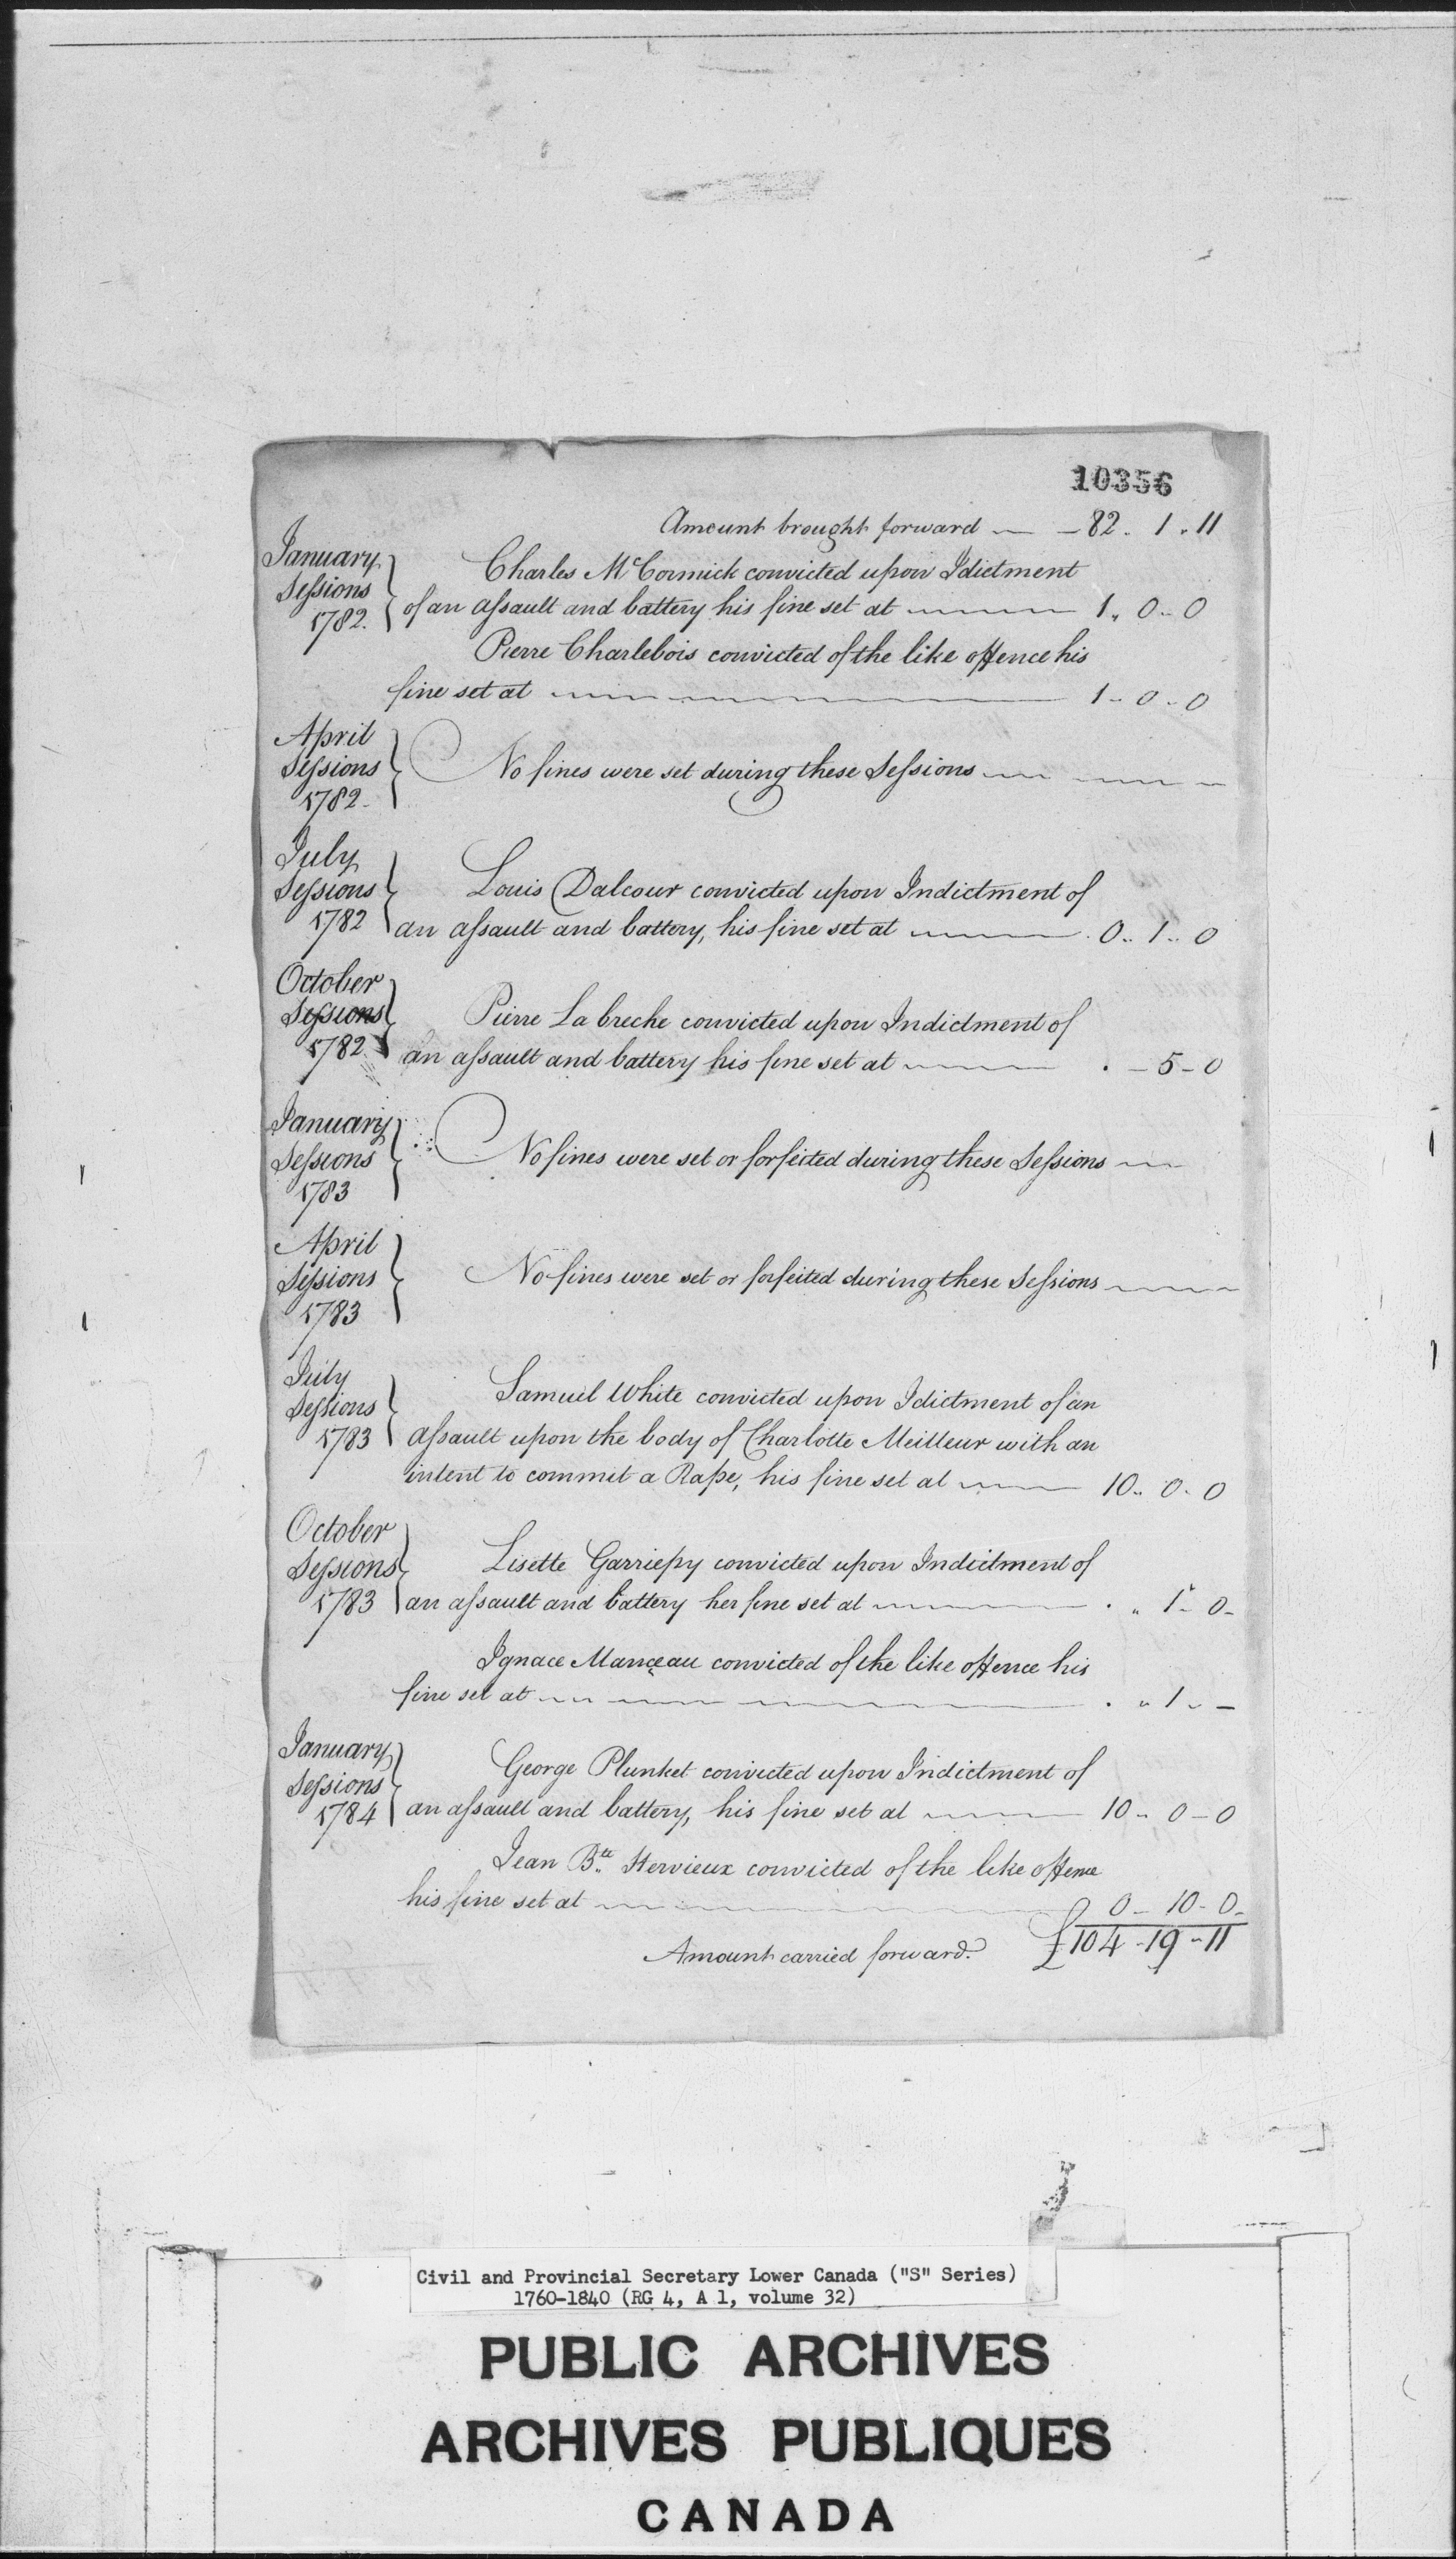 10356
Amount brought forward — — 82 . 1 . 11
January Sessions 1782. } Charles McCormick convicted upon Idictment
of an assault and battery his fine set at — 1 .. 0 .. 0
Pierre Charlebois convicted of the like offence his
fine set at — 1 - 0 - 0
April Sessions 1782 - } No fines were set during these Sessions —
July Sessions 1782 } Louis Dalcour convicted upon Indictment of
an assault and battery, his fine set at — 0 .. 1 .. 0
October Sessions 1782. } Pierre La breche convicted upon Indictment of
an assault and battery his fine set at — . - 5 - 0
January Sessions 1783 } No fines were set or forfeited during these Sessions —
April Sessions 1783 } No fines were set or forfeited during these Sessions —
July Sessions 1783 } Samuel White convicted upon Idictment of an
assault upon the body of Charlotte Meilleur with an
intent to commit a Rape, his fine set at — 10 .. 0 . 0
October Sessions 1783 } Lisette Garriepy convicted upon Indictment of
an assault and battery her fine set at — . " 1 - 0 -
Ignace Mançeau convicted of the like offence his
fine set at — . " 1 .. —
January Sessions 1784 } George Plunket convicted upon Indictment of
an assault and battery, his fine set at — 10 - 0 - 0
Jean Bte. Hervieux convicted of the like offence
his fine set at — 0 - 10 - 0 -
Amount carried forward. £104 - 19 - 11
Civil and Provincial Secretary Lower Canada ("S" Series)
1760-1840 (RG 4, A 1, volume 32)
PUBLIC ARCHIVES
ARCHIVES PUBLIQUES
CANADA